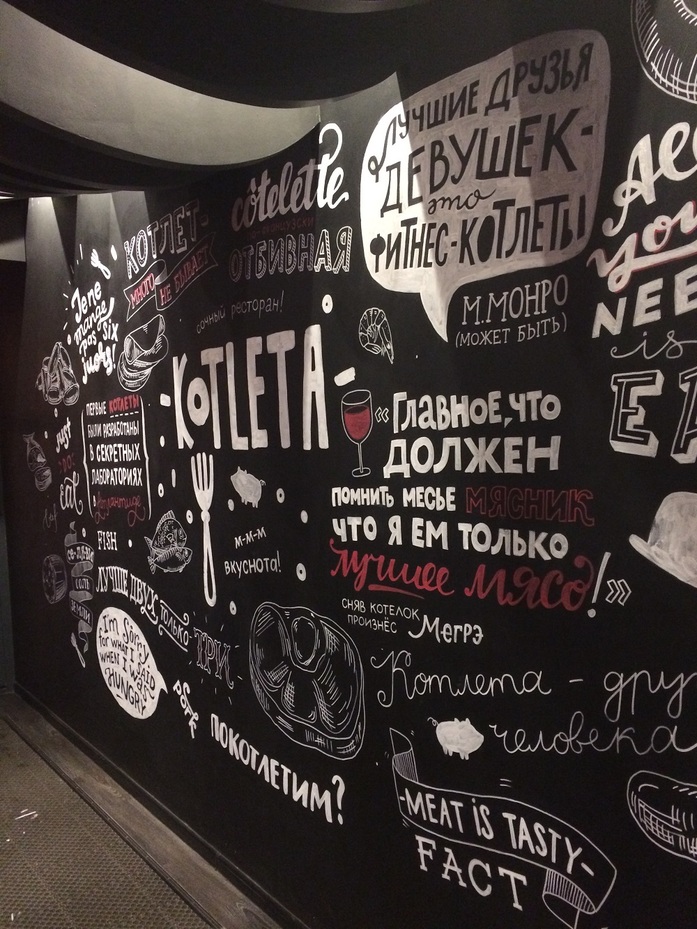 ЛУЧШИЕ ДРУЗЬЯ
ДЕВУШЕК-
это
ФИТНЕС-КОТЛЕТЫ
М.МОНРО
(МОЖЕТ БЫТЬ)
côtelette
ОТБИВНАЯ
КОТЛЕТ-
МНОГО НЕ БЫВАЕТ
сочный ресторан!
Je ne
mange
pas six
KOTLETA
ПЕРВЫЕ КОТЛЕТЫ
БЫЛИ РАЗРАБОТАНЫ
В СЕКРЕТНЫХ
ЛАБОРАТОРИЯХ
в Атлантиде
just
eat
FISH
м-м-м
вкуснота!
«Главное, что
ДОЛЖЕН
ПОМНИТЬ МЕСЬЕ МЯСНИК
ЧТО Я ЕМ ТОЛЬКО
лучшее мясо!»
СНЯВ КОТЕЛОК
ПРОИЗНЁС Мегрэ
ЛУЧШЕ ДВУХ ТОЛЬКО ТРИ
I'm Sorry
for WHAT I SAID
WHEN I WAS
HUNGRY
PORK
ПОКОТЛЕТИМ?
Котлета - дру
человека
-MEAT iS TASTY-
FACT
you
NEE
is
EA